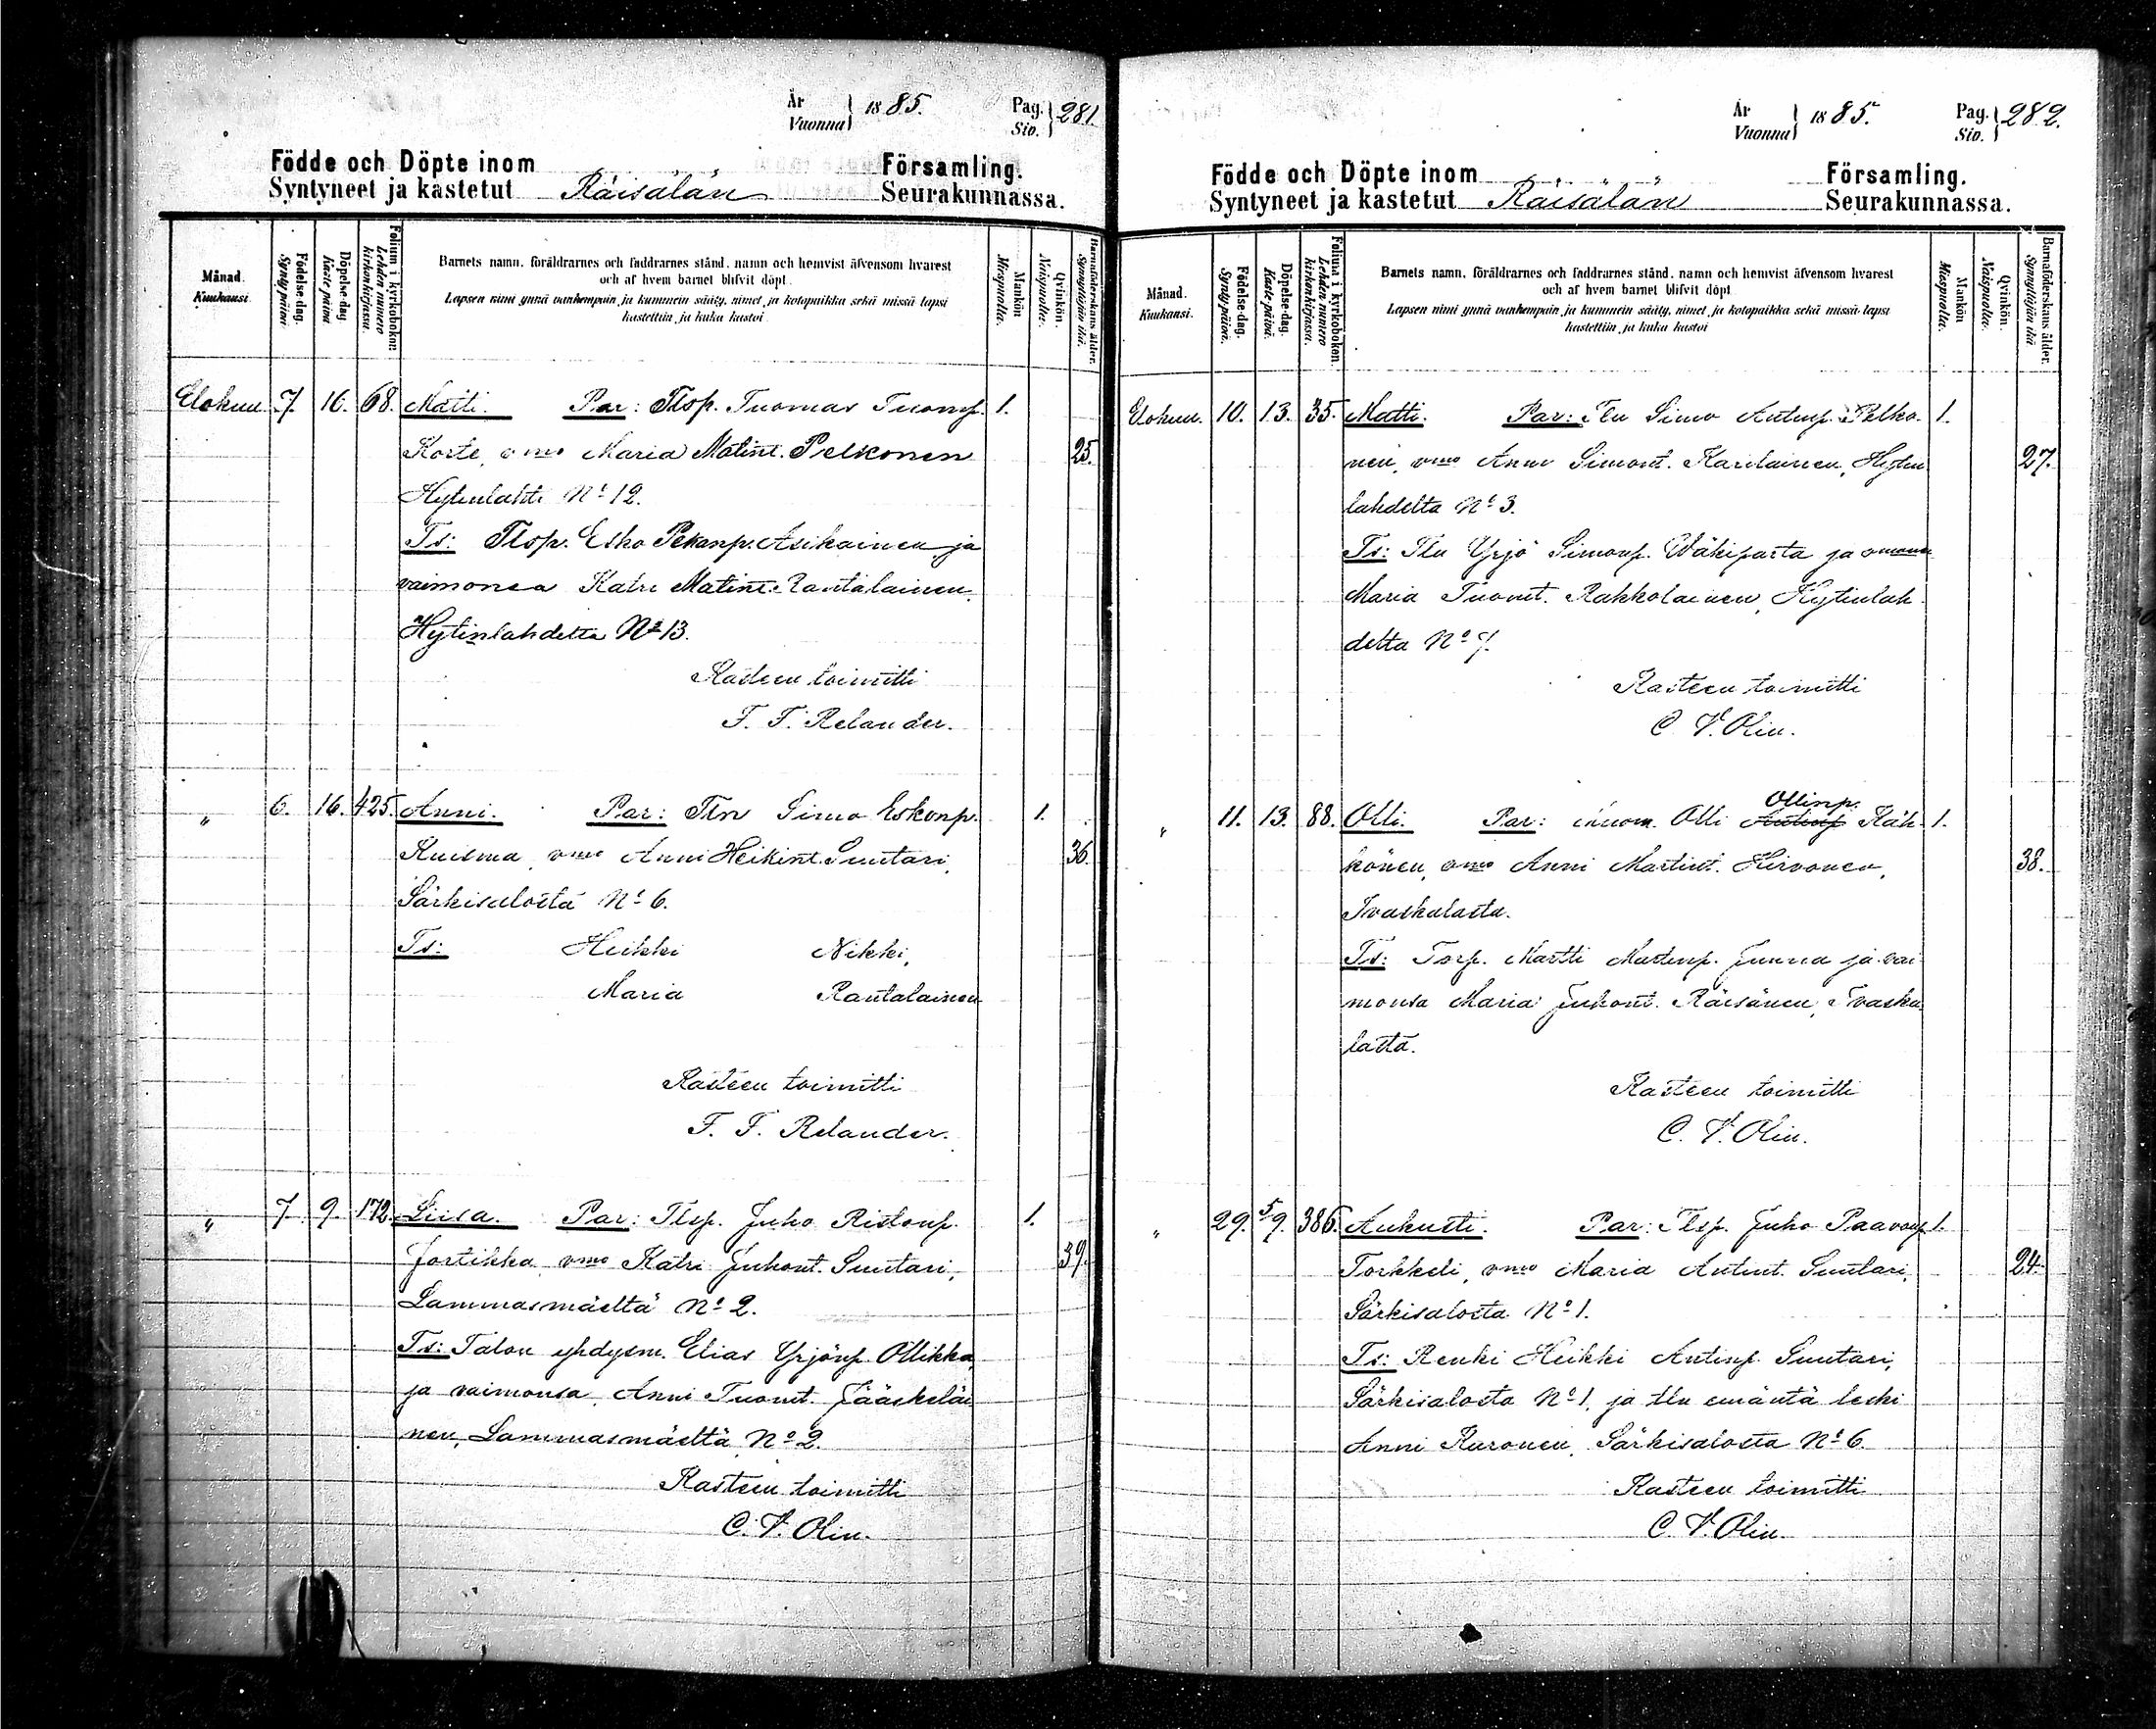 År
Vuonna } 1885.
Pag.
Siv. } 281.
Födde och Döpte inom Församling.
Syntyneet ja kastetut Räisälän Seurakunnassa.
Månad. Kuukausi.
Födelse-dag. Syntypäivä.
Döpelse-dag. Kaste päivä
Folium i kyrkoboken. Lehden numero kirkonkirjassa.
Barnets namn, föräldrarnes och faddrarnes stånd, namn och hemvist äfvensom hvarest
och af hvem barnet blifvit döpt.
Lapsen nimi ynnä vanhempain ja kummein sääty, nimet ja kotopaikka sekä missä lapsi
kastettiin ja kuka kastoi
Mankön Miespuolta.
Qvinkön. Naispuolta.
Barnaföderskans ålder. Synnyttäjän ikä.
Elokuu 7. 16. 68. Matti. Par: Tlsp. Tuomas Tuomp. 1.
Korte, vmo Maria Matint. Pelkonen 25.
Hytinlahti No 12.
Ts: Tlsp. Esko Pekanp. Asikainen ja
vaimonsa Katri Matint. Rantalainen,
Hytinlahdelta No 13.
Kasteen toimitti
F. F. Relander.
" 6. 16. 425. Anni. Par: Tln Simo Eskonp. 1.
Kuisma, vmo Anni Heikint. Suutari, 36.
Särkisalosta No 6.
Ts: Heikki Nikki,
Maria Rantalainen
Kasteen toimitti
F. F. Relander.
" 7. 9. 172. Liisa. Par: Tlsp. Juho Ristonp. 1.
Jortikka, vmo Katri Juhont. Suutari, 39.
Lammasmäeltä No 2.
Ts: Talon yhdysm. Elias Yrjönp. Ollikka,
ja vaimonsa Anni Tuomt. Jääskeläi
nen, Lammasmäeltä No 2.
Kasteen toimitti
C. V. Olin.
År
Vuonna } 1885.
Pag.
Siv. } 282.
Födde och Döpte inom Församling.
Syntyneet ja kastetut Räisälän Seurakunnassa.
Månad. Kuukausi.
Födelse-dag. Syntypäivä.
Döpelse-dag. Kaste päivä.
Folium i kyrkoboken. Lehden numero kirkonkirjassa.
Barnets namn, föräldrarnes och faddrarnes stånd, namn och hemvist äfvensom hvarest
och af hvem barnet blifvit döpt
Lapsen nimi ynnä vanhempain ja kummein sääty, nimet ja kotopaikka sekä missä lapsi
kastettiin ja kuka kastoi
Mankön Miespuolta.
Qvinkön. Naispuolta.
Barnaföderskans ålder. Synnyttäjän ikä
Elokuu. 10. 13. 35. Matti. Par: Tln Simo Antinp. Pelko- 1.
nen, vmo Anni Simont. Karilainen, Hytin 27.
lahdelta No 3.
Ts: Tln Yrjö Simonp. Wäkiparta ja vmonsa
Maria Tuomt. Rakkolainen, Hytinlah
delta No 7.
Kasteen toimitti
C. V. Olin.
" 11. 13. 88. Olli. Par: Olli Antinp Ollinp. Käh- 1.
könen, vmo Anni Martint. Hirvonen, 38.
Ivaskalasta.
Ts: Torp. Martti Matinp. Junna ja vai
monsa Maria Juhont. Räisänen, Ivaska
lasta.
Kasteen toimitti
C. V. Olin.
" 29. 5/9. 386. Aukusti. Par: Tlsp. Juho Paavonp. 1.
Torkkeli, vmo Maria Antint. Suutari, 24.
Särkisalosta No 1.
Ts: Renki Heikki Antinp. Suutari,
Särkisalosta No 1, ja tln emäntä leski
Anni Kuronen, Särkisalosta No 6.
Kasteen toimitti
C. V. Olin.